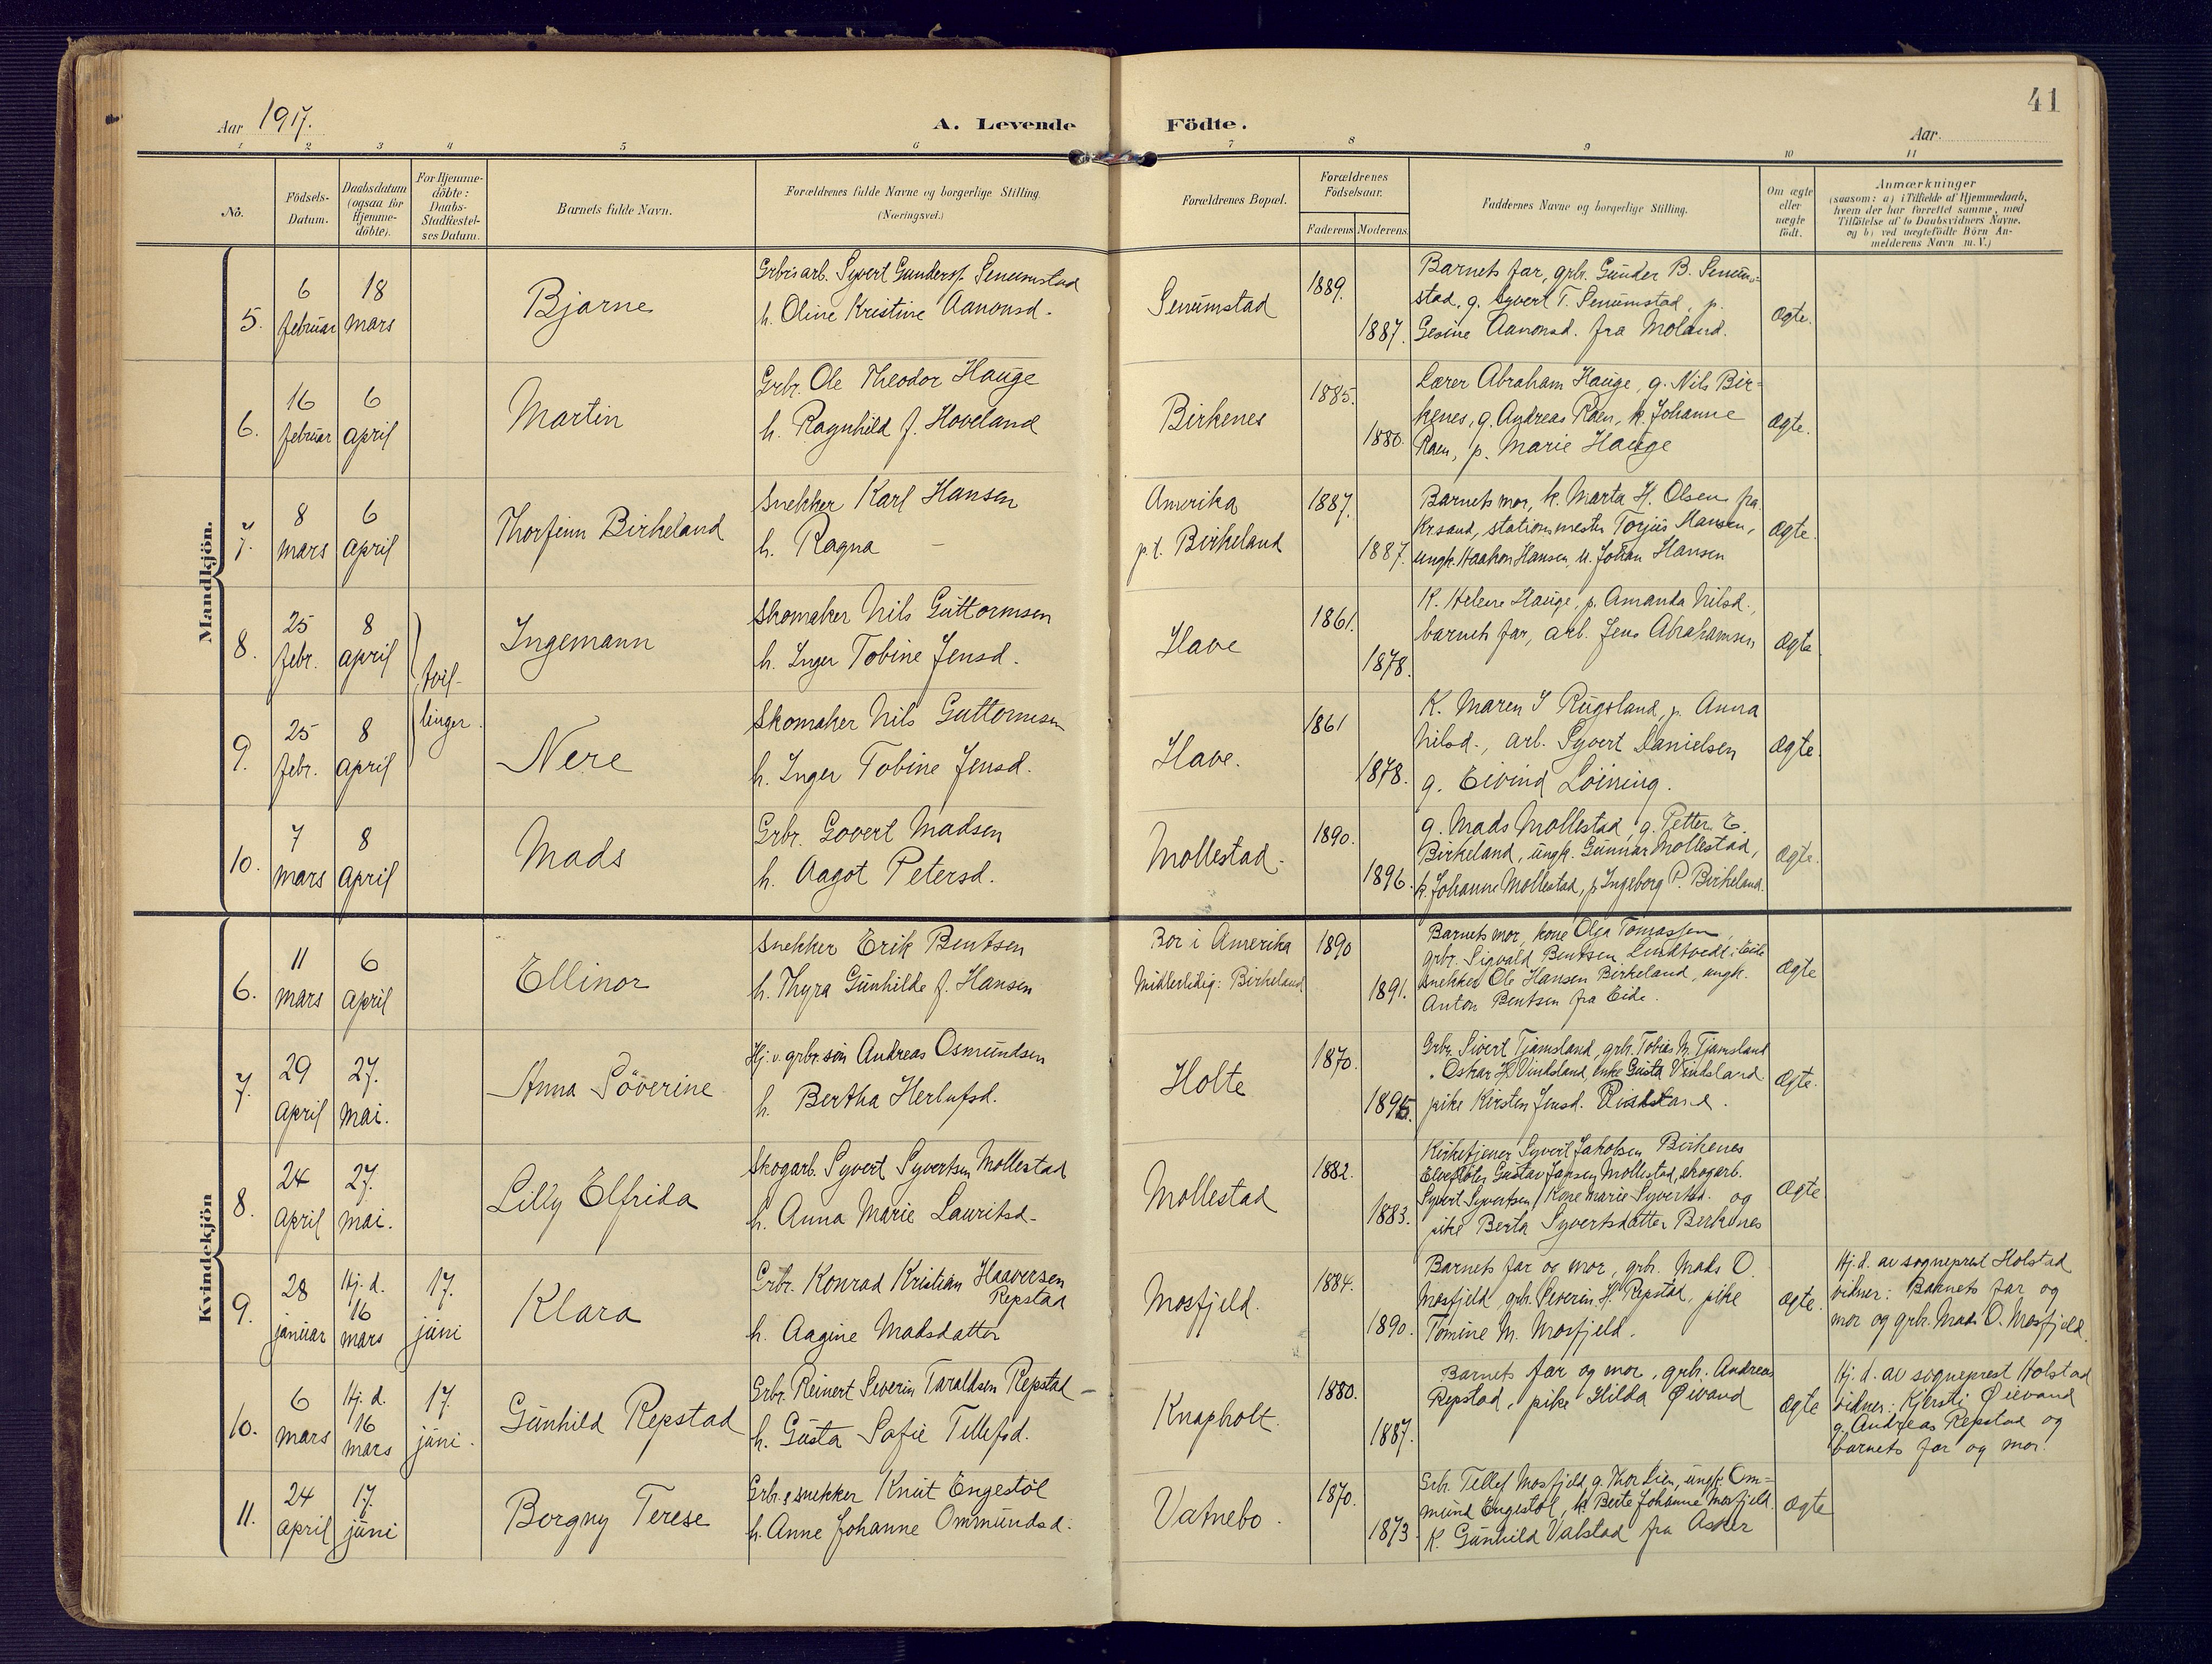 41
Aar 1917.
A. Levende Födte.
Aar
1 2 3 4 5 6 7 8 9 10 11
No.
Födsels-
Datum.
Daabsdatum
(ogsaa for
Hjemme-
döbte).
For Hjemme-
döbte:
Daabs-
Stadfæstel-
ses Datum.
Barnets fulde Navn.
Forældrenes fulde Navne og borgerlige Stilling.
(Næringsvei.)
Forældrenes Bopæl.
Forældrenes
Födselsaar.
Faderens
Moderens
Faddernes Navne og borgerlige Stilling.
Om ægte
eller
uægte
födt.
Anmærkninger
(saasom: a) i Tilfælde af Hjemmedaab,
hvem der har forrettet samme, med
Tilföielse af to Daabsvidners Navne.
og b) ved uægtefödte Börn An-
melderens Navn m. V.)
Mandkjön.
5.
6
februar
18
mars
Bjarne
Grbrsarb. Syvert Gunders. Senumstad
h. Oline Kristine Aanonsd.
Senumstad
1889.
1887.
Barnets far, grbr. Gunder B. Senum-
stad, g. Syvert T. Senumstad, p.
Gesine Aanonsd. fra Moland.
Ægte.
6.
16
februar
6
april
Martin
Grbr. Ole Theodor Hauge
h. Ragnhild f. Hoveland
Birkenes
1885.
1880.
Lærer Abraham Hauge, g. Nils Bir-
kenes, g. Andreas Raen, k. Johanne
Raen, p. Marie Hauge
Ægte.
7.
8
mars
6
April
Thorfinn Birkeland
Snekker Karl Hansen
h. Ragna –
Amerika
p.t. Birkeland
1887.
1887.
Barnets mor, k. Marta H. Olsen fra
Krsand, stationsmester Torjus Hansen,
ungk. Haakon Hansen, u. Johan Hansen
Ægte.
8.
25
febr.
8
april
tvil-
linger.
Ingemann
Skomaker Nils Guttormsen
h. Inger Tobine Jensd.
Have
1861.
1878.
K. Helene Hauge, p. Amanda Nilsd.,
barnets far, arb. Jens Abrahamsen
Ægte.
9.
25
febr.
8
april
Nere
Skomaker Nils Guttormsen
h. Inger Tobine Jensd.
Have.
1861
1878.
K. Maren J Rugsland, p. Anna
Nilsd., arb. Syvert Danielsen
g. Eivind Löining.
Ægte.
10.
7
mars
8
April
Mads
Grbr. Govert Madsen
h. Aagot Petersd.
Mollestad.
1890.
1896.
g. Mads Mollestad, g. Petter E.
Birkeland, ungk. Gunnar Mollestad,
k. Johanne Mollestad, p. Ingeborg P. Birkeland.
Ægte.
Kvindekjön
6.
11
mars
6
April
Ellinor
Snekker Erik Bentsen
h. Thyra Gunhilde f. Hansen
Bor i Amerika
Midlertidig: Birkeland
1890
1891.
Barnets mor, kone Olga Tomassen,
grbr. Sigvald Bentsen Lundtvedt i Eide
snekker Ole Hansen Birkeland, ungk.
Anton Bentsen fra Eide.
Ægte
7.
29
April
27.
Mai.
Anna Söverine
Hj. v. grbr. sön Andreas Osmundsen
h. Bertha Herlufsd.
Holte
1870.
Grbr. Sivert Tjamsland, grbr. Tobias M. Tjamsland
Oskar H. Vindsland, enke Gusta Vindsland
pike Kirsten Jensd.
Ægte.
8.
24
April
27.
mai.
Lilly Elfrida
Skogarb. Syvert Syvertsen Mollestad
h. Anna Marie Lauritsd.
Mollestad
1882.
1883.
Kirketjener Syvert Jakobsen Birkenes
Gustav Jansen Mollestad, skogarb.
Syvert Syvertsen, Kone Marie Syvertsd. og
pike Berta Syvertsdatter Birkenes
Ægte
9.
28
januar
Hj. d.
16
mars
17.
juni
Klara
Grbr. Konrad Kristian Haaversen
Repstad
h. Aagine Madsdatter
Mosfjeld.
1884.
1890.
Barnets far og mor, grbr. Mads O.
Mosfjeld, grbr. Severin H. Repstad, pike
Tomine M. Mosfjeld.
Ægte.
Hj. d. av sogneprest Holstad
vidner: Barnets far og
mor og grbr. Mads O. Mosfjeld.
10.
6
mars
Hj. d.
16
mars
17.
juni.
Gunhild Repstad
Grbr. Reinert Severin Taraldsen Repstad
h. Gusta Sofie Tellefsd.
Knapholt.
1880.
1887.
Barnets far og mor, grbr. Andreas
Repstad, pike Hilda Øivand
Ægte
Hj. d. av sogneprest Holstad
vidner: Kjersti Øievand
g. Andreas Repstad og
barnets far og mor.
11.
24
april
17.
juni
Borgny Terese
Grbr. & snekker Knut Engestöl
h. Anne Johanne Ommundsd.
Vatnebo.
1870.
1873
Grbr. Tellef Mosfjeld, g. Thor Lien, ungk. Om-
mund Engestöl, k. Berte Johanne Mosfjeld.
K. Gunhild Valstad fra Asker
Ægte